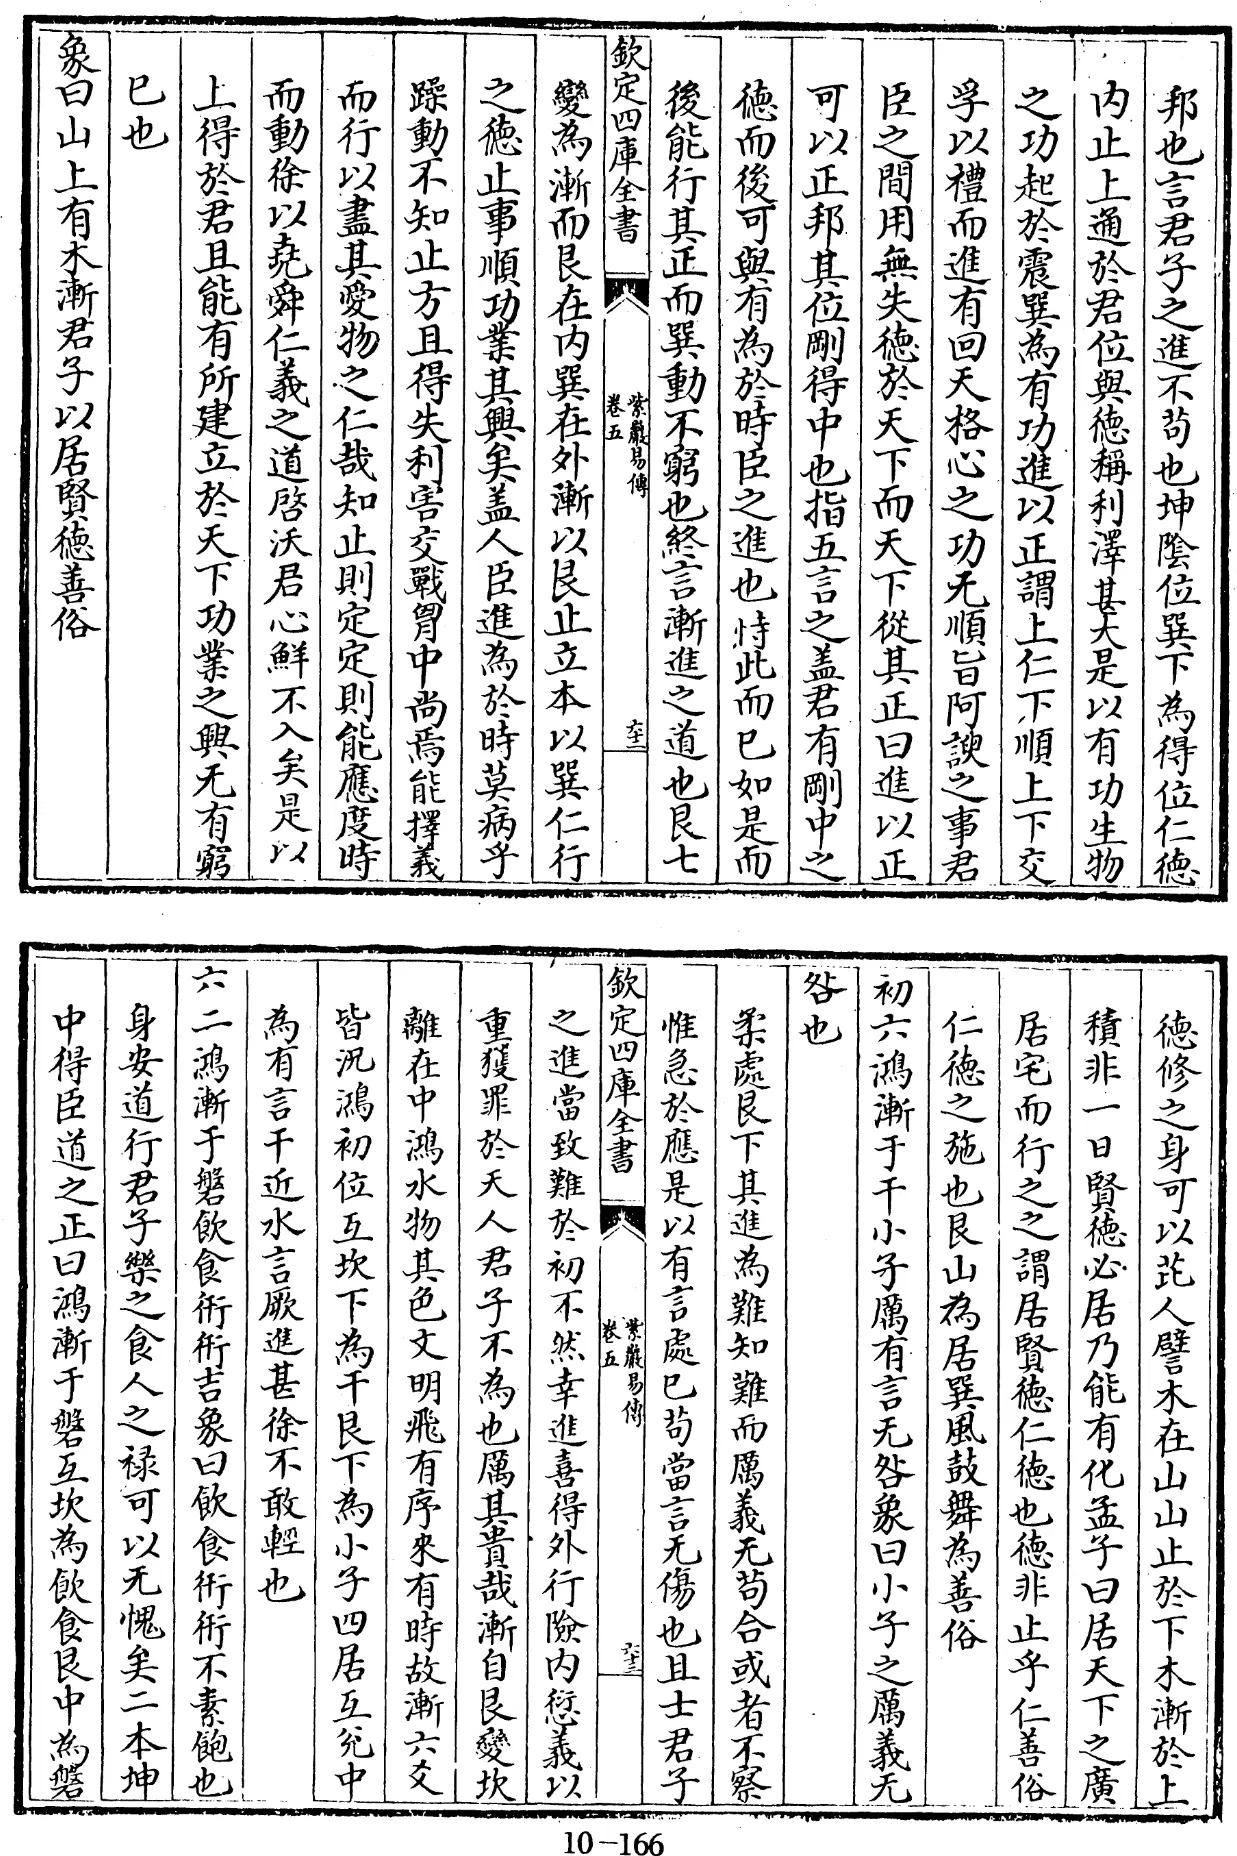 邦也言君子之進不苟也坤隂位巽下為得位仁德
内止上通於君位與德稱利澤甚大是以有功生物
之功起於震巽為有功進以正謂上仁下順上下交
孚以禮而進有回天格心之功无順旨阿諛之事君
臣之間用無失德於天下而天下從其正曰進以正
可以正邦其位剛得中也指五言之盖君有剛中之
德而後可與有為於時臣之進也恃此而已如是而
後能行其正而巽動不窮也終言漸進之道也艮七
欽定四庫全書
紫巖易傳
卷五
六十二
變為漸而艮在内巽在外漸以艮止立本以巽仁行
之德止事順功業其興矣盖人臣進為於時莫病乎
躁動不知止方且得失利害交戰胷中尚焉能擇義
而行以盡其愛物之仁哉知止則定定則能應度時
而動徐以堯舜仁義之道啓沃君心鮮不入矣是以
上得於君且能有所建立於天下功業之興无有窮
已也
象曰山上有木漸君子以居賢德善俗
德修之身可以茈人譬木在山山止於下木漸於上
積非一日賢德必居乃能有化孟子曰居天下之廣
居宅而行之之謂居賢德仁德也德非止乎仁善俗
仁德之施也艮山為居巽風鼓舞為善俗
初六鴻漸于干小子厲有言无咎象曰小子之厲義无
咎也
柔處艮下其進為難知難而厲義无苟合或者不察
惟急於應是以有言處已苟當言无傷也且士君子
欽定四庫全書
紫巖易傳
卷五
六十三
之進當致難於初不然幸進喜得外行險内愆義以
重獲罪於天人君子不為也厲其貴哉漸自艮變坎
離在中鴻水物其色文明飛有序來有時故漸六爻
皆況鴻初位互坎下為干艮下為小子四居互兊中
為有言干近水言厥進甚徐不敢輕也
六二鴻漸于磐飲食衎衎吉象曰飲食衎衎不素飽也
身安道行君子樂之食人之禄可以无愧矣二本坤
中得臣道之正曰鴻漸于磐互坎為飲食艮中為磐
10-166